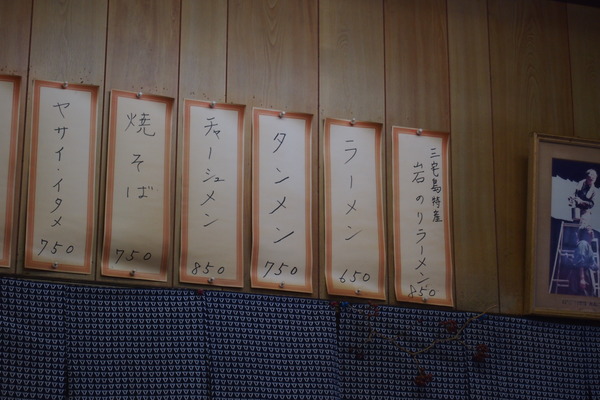 三宅島特産
岩のりラーメン
850
ラーメン
650
タンメン
750
チャーシュメン
850
焼そば
750
ヤサイ・イタメ
750